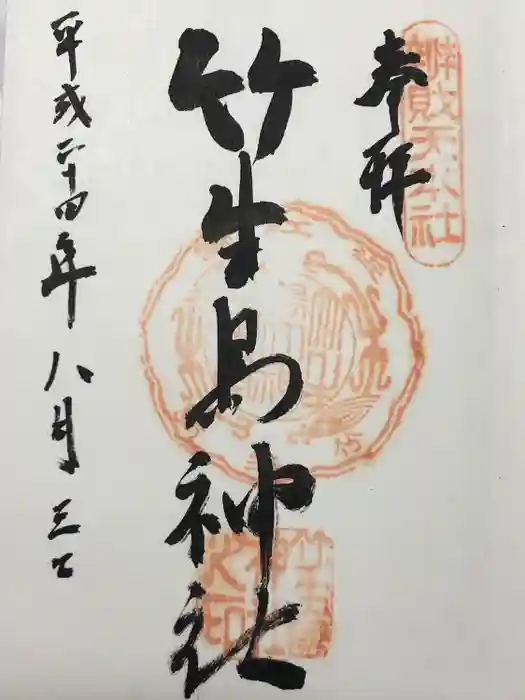 奉拝
辨財天本社
竹生島神社
竹生島神社之印
平成二十四年八月三日